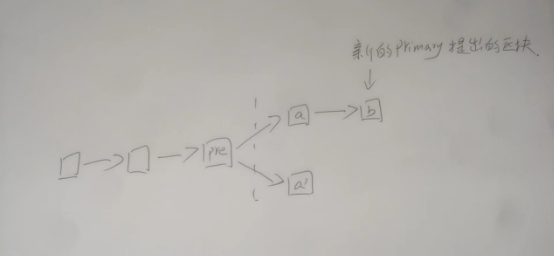 新的Primary 提出的区块
a
b
pre
a'